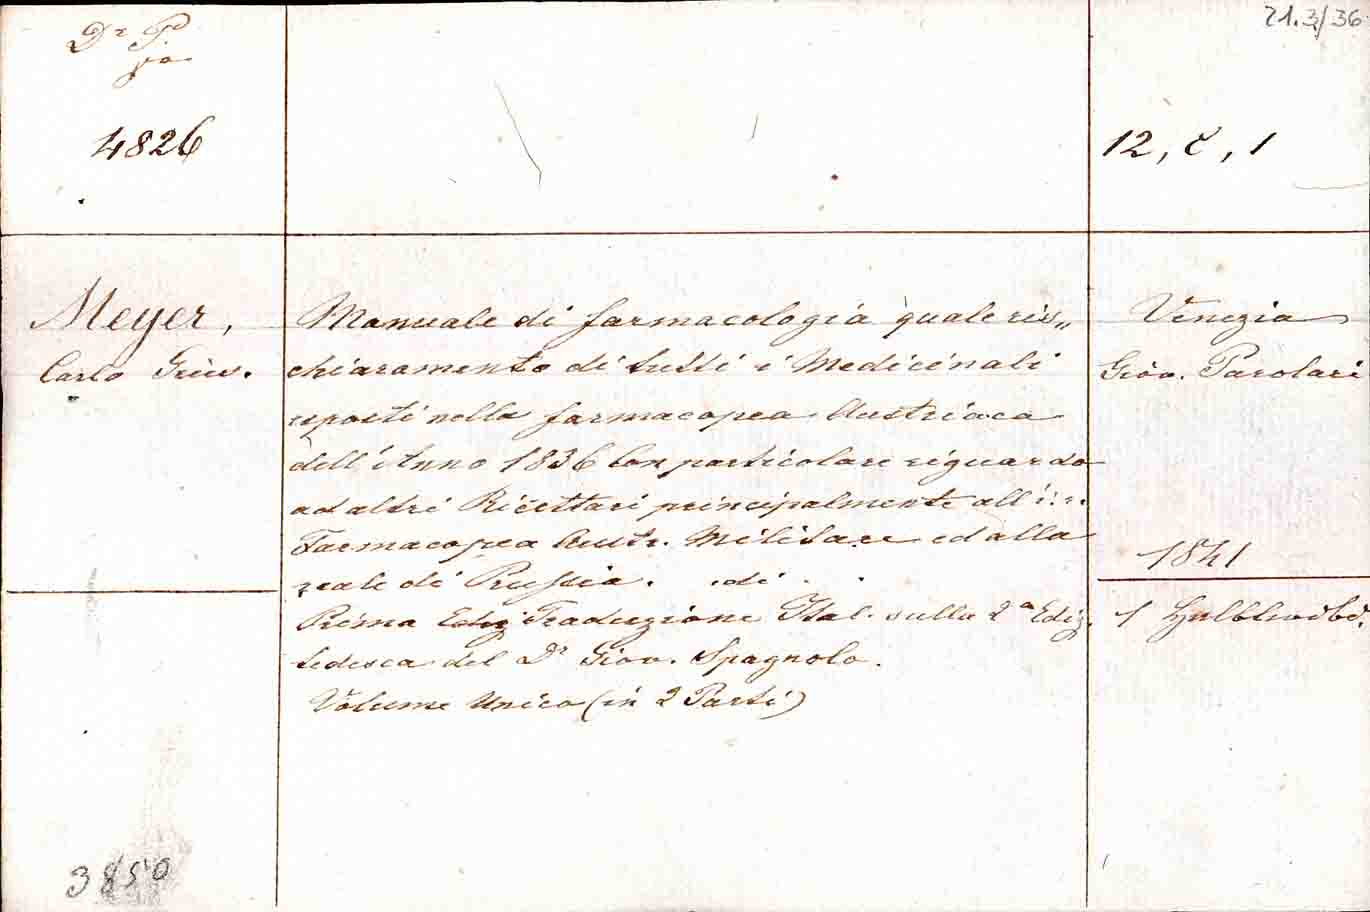 21.3/36
Dr P.
4826
12, c, 1
Meyer,
Carlo Gius.
Manuale di farmacologia quale ris„
chiaramento di tutti i Medicinali
esposti nella farmacopea Austriaca
dell'Anno 1836 Con particolare riguardo
ad altri Ricettari principalmente all'i. r.
Farmacopea Austr. Militare ed alla
reale di Prussia. di
Prima Ediz Traduzione Ital. sulla 2a Ediz.
tedesca del Dr Giov. Spagnolo.
Volume Unico (in 2 Parti)
Venezia
Giov. Parolari
1841
1 Halblwdbd.
3850